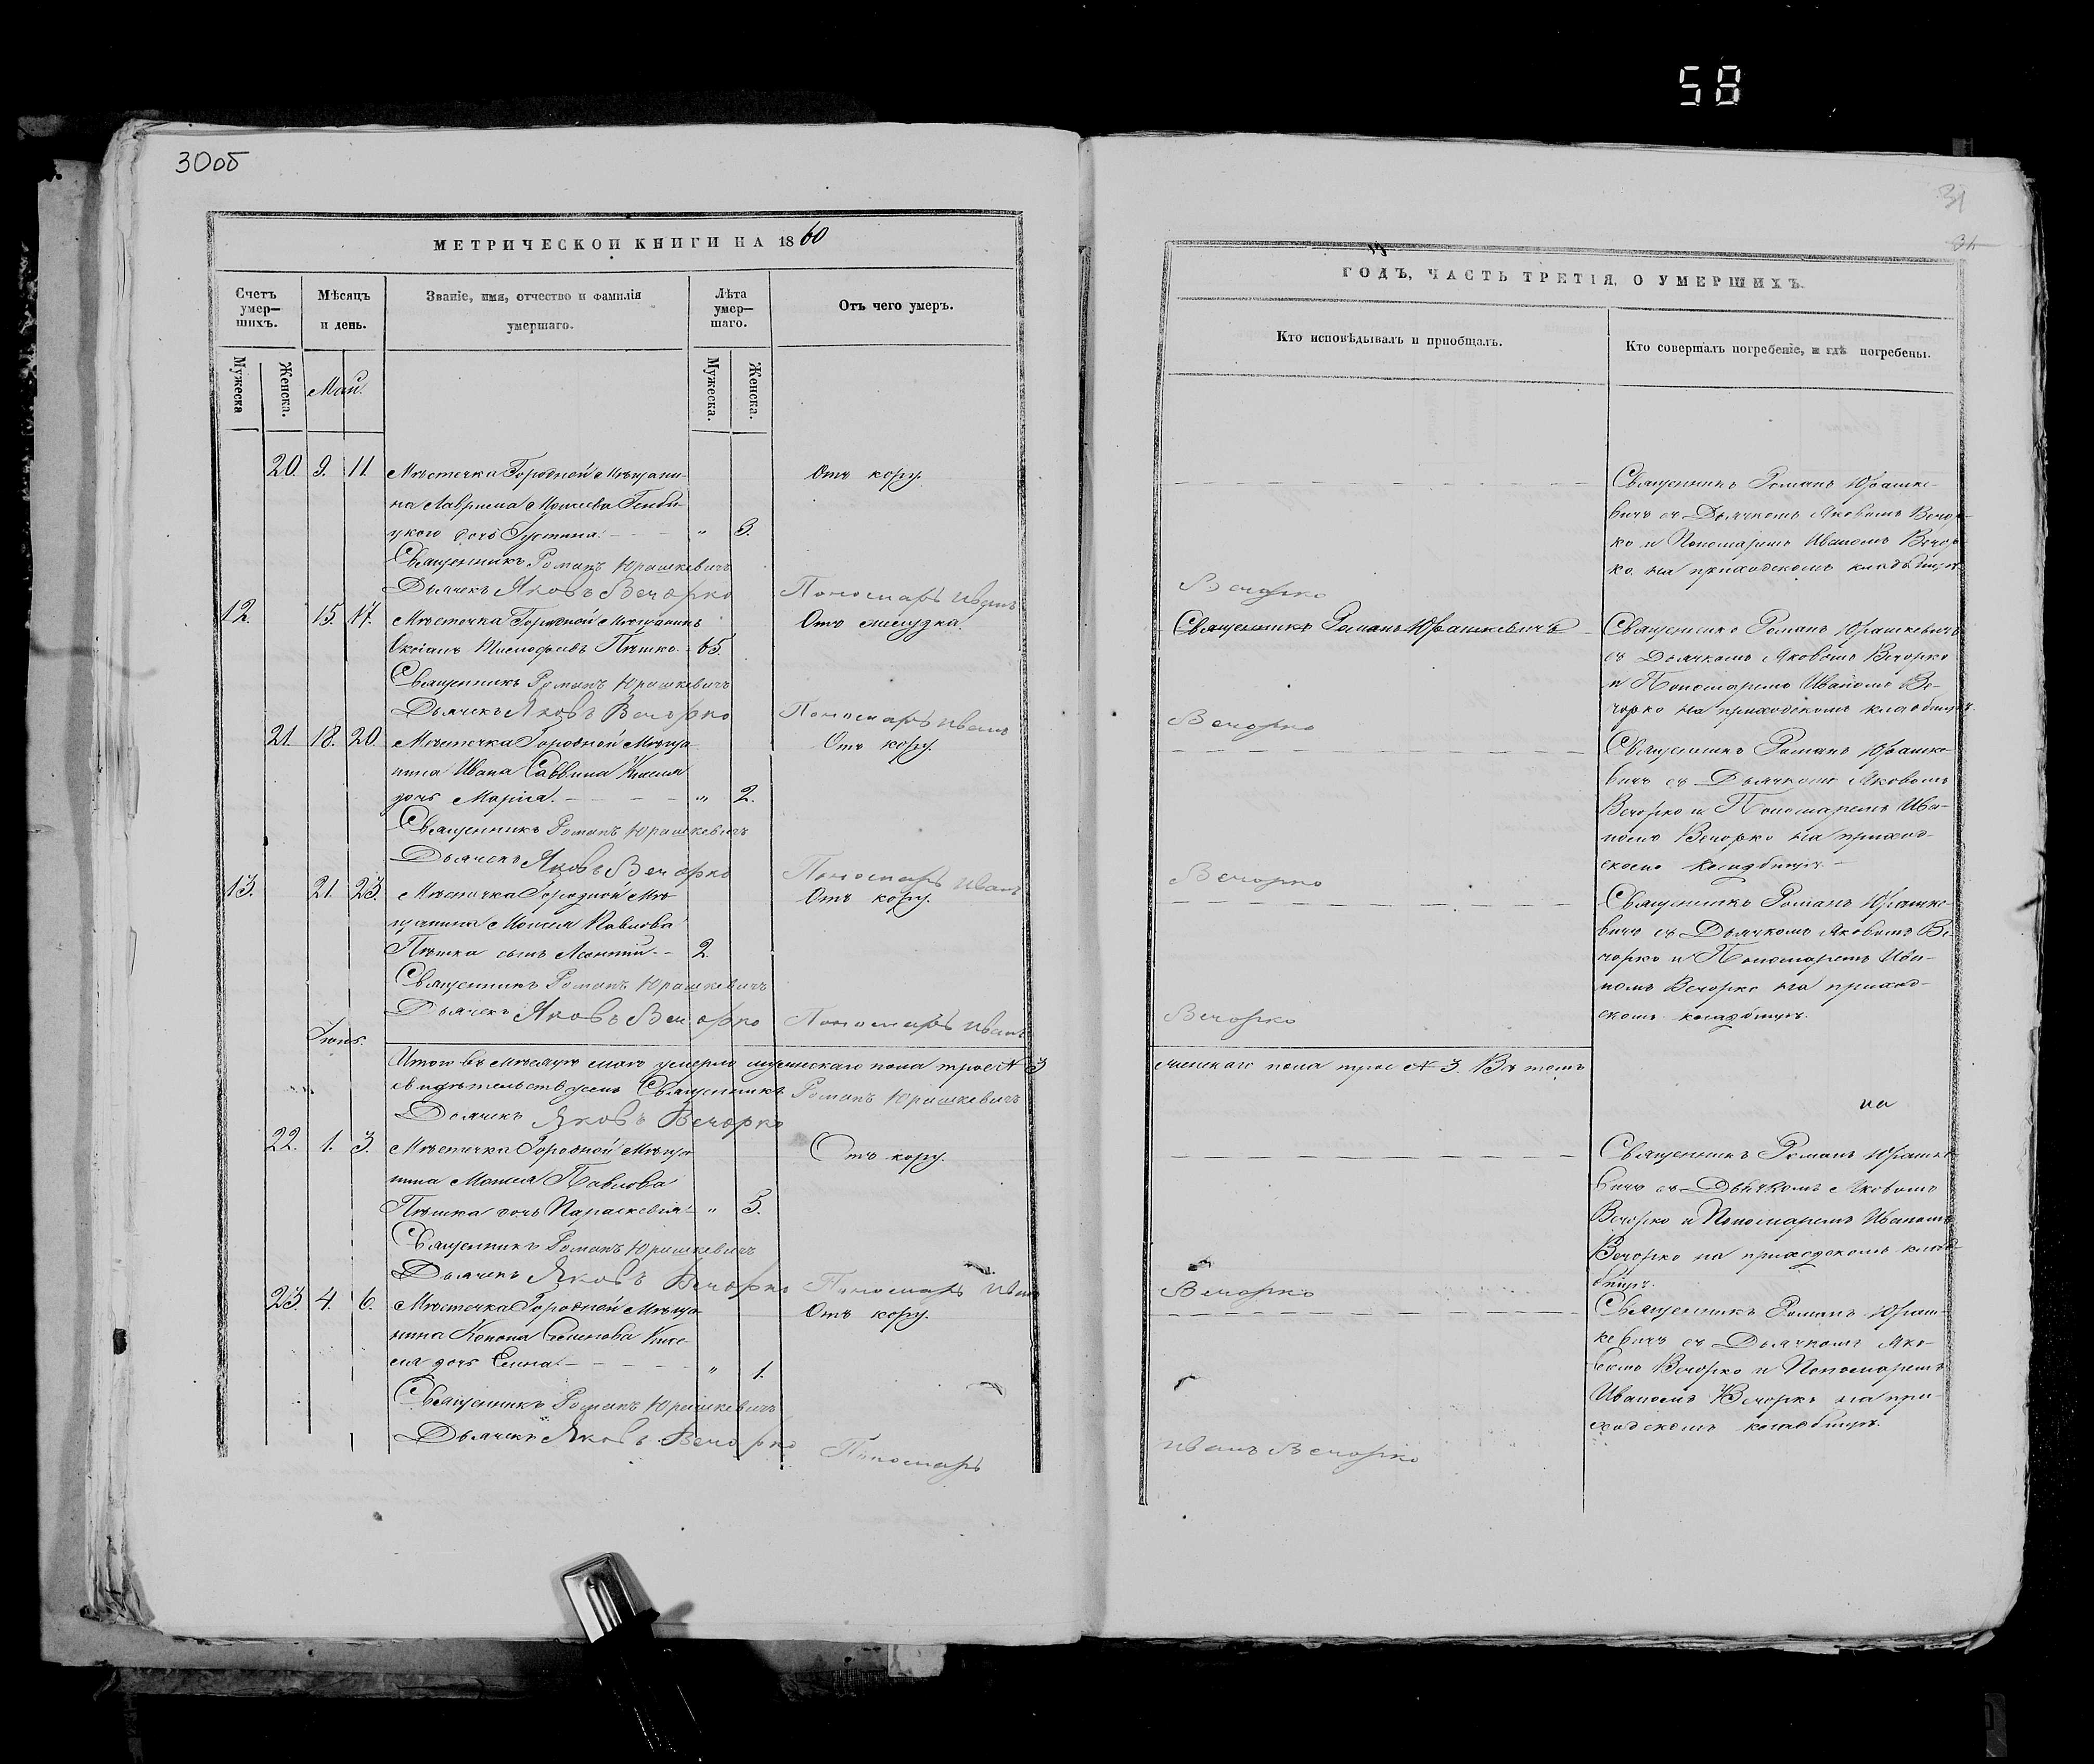 58
30об
31
МЕТРИЧЕСКОЙ КНИГИ НА 1860
Счетъ умер—шихъ.
Мѣсяцъ и день.
Званіе, имя, отчество и фамилія умершаго.
Лѣта умер—шаго.
Отъ чего умеръ.
Мужеска
Женска.
Май.
Мужеска.
Женска.
20. 9. 11 Мѣстечка Городной Мѣщани-
на Лаврина Моисеева
цкого дочь Густина. " 3.
Отъ кору.
Священникъ Романъ Юрашкевичъ
Дьячекъ Яковъ Вечорко Пономарь Иванъ
12. 15. 17. Мѣстечка Городной Мѣщанинъ
Пѣшко 65.
Отъ желудка.
Священникъ Романъ Юрашкевичъ
Дьячекъ Яковъ Вечорко Пономарь Иванъ
21. 18. 20. Мѣстечка Городной Мѣща-
нина Ивана Саввина
дочь Марія. " 2.
Отъ кору.
Священникъ Романъ Юрашкевичъ
Дьячекъ Яковъ Вечорко Пономарь Иванъ
13. 21. 23. Мѣстечка Городной Мѣ-
щанина Моисея Павлова
Пѣшка сынъ Леонтій 2.
Отъ кору.
Священникъ Романъ Юрашкевичъ
Дьячекъ Яковъ Вечорко Пономарь Иванъ
Іюнь.
Итого въ мѣсяцѣ маѣ умерло мужескаго пола трое № 3
свидѣтельствуемъ Священникъ Романъ Юрашкевичъ
Дьячекъ Яковъ Вечорко
22. 1. 3. Мѣстечка Городной Мѣща-
нина Моисея Павлова
Пѣшка дочь Параскевія " 5.
Отъ кору.
Священникъ Романъ Юрашкевичъ
Дьячекъ Яковъ Вечорко Пономарь Иванъ
23. 4. 6. Мѣстечка Городной Мѣща-
нина Конона Семенова Кисе-
ля дочь Елена " 1.
Отъ кору.
Священникъ Романъ Юрашкевичъ
Дьячекъ Яковъ Вечорко Пономарь
ГОДЪ, ЧАСТЬ ТРЕТІЯ, О УМЕРШИХЪ.
Кто исповѣдывалъ и пріобщалъ.
Кто совершалъ погребеніе, и гдѣ погребены.
Священникъ Романъ Юрашке-
вичъ съ Дьячкомъ Яковомъ Вечор-
ко и Пономаремъ Иваномъ Вечор-
ко на приходскомъ кладбищѣ
Вечорко
Священникъ Романъ Юрашкевичъ
Священникъ Романъ Юрашкевичъ
съ Дьячкомъ Яковомъ Вечорко
и Пономаремъ Иваномъ Ве-
чорко на приходскомъ кладбищѣ.
Вечорко
Священникъ Романъ Юрашке-
вичъ съ Дьячкомъ Яковомъ
Вечорко и Пономаремъ Ива-
номъ Вечорко на приход-
скомъ кладбищѣ.
Вечорко
Священникъ Романъ Юрашке-
вичъ съ Дьячкомъ Яковомъ Ве-
чорко и Пономаремъ Ива-
номъ Вечорко на приход-
скомъ кладбищѣ.
Вечорко
женскаго пола трое № 3. Въ томъ
Священникъ Романъ Юрашке-
вичъ съ Дьячкомъ Яковомъ
Вечорко и Пономаремъ Иваномъ
Вечорко на приходскомъ клад-
бищѣ.
Вечорко
Священникъ Романъ Юраш-
кевичъ съ Дьячкомъ Яко-
вомъ Вечорко и Пономаремъ
Иваномъ Вечорко на при-
ходскомъ кладбищѣ.
Иванъ Вечорко